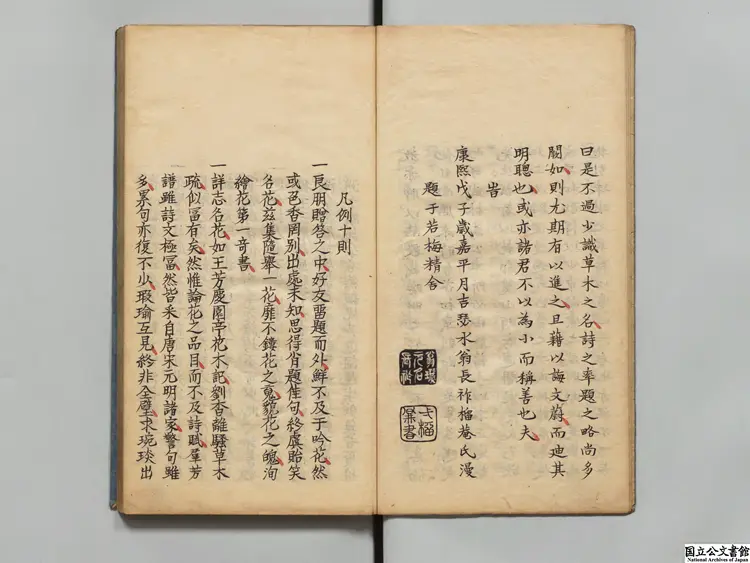 曰是不過少識草木之名詩之率題之略尚多
闕如則尤期有以進之且藉以誨文蔚而迪其
明聰也或亦諸君不以為小而稱善也夫
旹
康熙戊子歲嘉平月吉瑟水翁長祚榴菴氏漫
題于岩梅精舍
凡例十則
一良朋贈答之中好友畱題而外鮮不及于吟花然
或色香罔别出處未知思得肖題佳句終虞貽笑
名花茲集隨舉一花靡不鏤花之魂貌花之魄洵
繪花第一奇書
一詳志名花如王芳慶園亭花木記劉杳離騷草木
疏似富有矣然惟論花之品目而不及詩賦羣芳
譜雖詩文極富然皆采自唐宋元明諸家警句雖
多累句亦復不少瑕瑜互見終非全璧求琬琰出
国立公文書館
National Archives of Japan